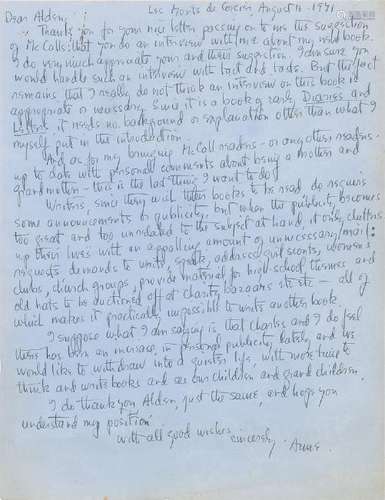 Les Monts de Corsier August 11 - 1971
Dear Alden,
Thank you for your nice letter passing on to me the suggestion
of McCalls that you do an interview with me about my new book.
I do very much appreciate your and their suggestion. I am sure you
would handle such an interview with tact and taste. But the fact
remains that I really do not think an interview on this book is
appropriate or necessary. Since it is a book of early Diaries and
Letters, it needs no background or explanation other than what I
myself put in the introduction.
And as for my bringing McCall readers - or any other, readers -
up to date with personal comments about being a mother and
grandmother - this is the last thing I want to do!
Writers, since they wish their books to be read, do require
some announcements or publicity, but when the publicity becomes
too great and too unrelated to the subject at hand, it only clutters
up their lives with an appalling amount of unnecessary mail:
requests demands to write, speak, address girl scouts, women's
clubs, church groups, provide material for high school themes and
old hats to be auctioned off at charity bazaars etc etc — all of
which makes it practically impossible to write another book.
I suppose what I am saying is that Charles and I do feel
there has been an increase in personal publicity lately and we
would like to withdraw into a quieter life, with more time to
think and write books and see our children and grandchildren.
I do thank you Alden, just the same, and hope you
understand my position.
With all good wishes
sincerely - Anne